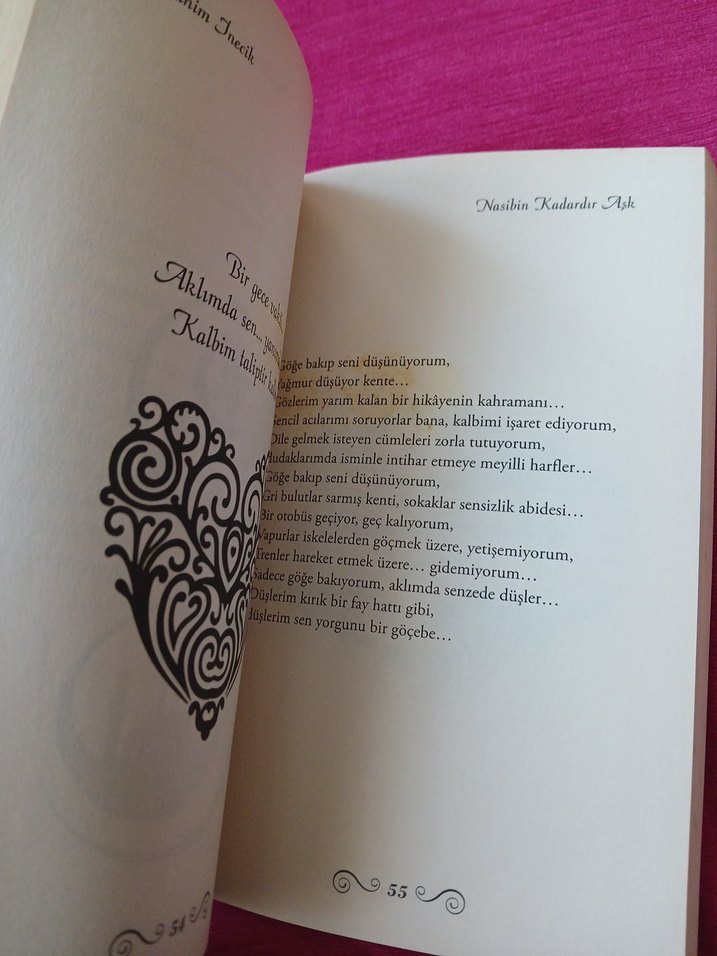 İnecik
Bir gece
Aklımda sen...
Kalbim taliptir
54
Nasibin Kadardır Aşk
Göğe bakıp seni düşünüyorum,
Yağmur düşüyor kente…
Gözlerim yarım kalan bir hikâyenin kahramanı…
Sencil acılarımı soruyorlar bana, kalbimi işaret ediyorum,
Dile gelmek isteyen cümleleri zorla tutuyorum,
Dudaklarımda isminle intihar etmeye meyilli harfler…
Göğe bakıp seni düşünüyorum,
Gri bulutlar sarmış kenti, sokaklar sensizlik abidesi…
Bir otobüs geçiyor, geç kalıyorum,
Vapurlar iskelelerden göçmek üzere, yetişemiyorum,
Trenler hareket etmek üzere… gidemiyorum…
Sadece göğe bakıyorum, aklımda senzede düşler…
Düşlerim kırık bir fay hattı gibi,
düşlerim sen yorgunu bir göçebe…
55